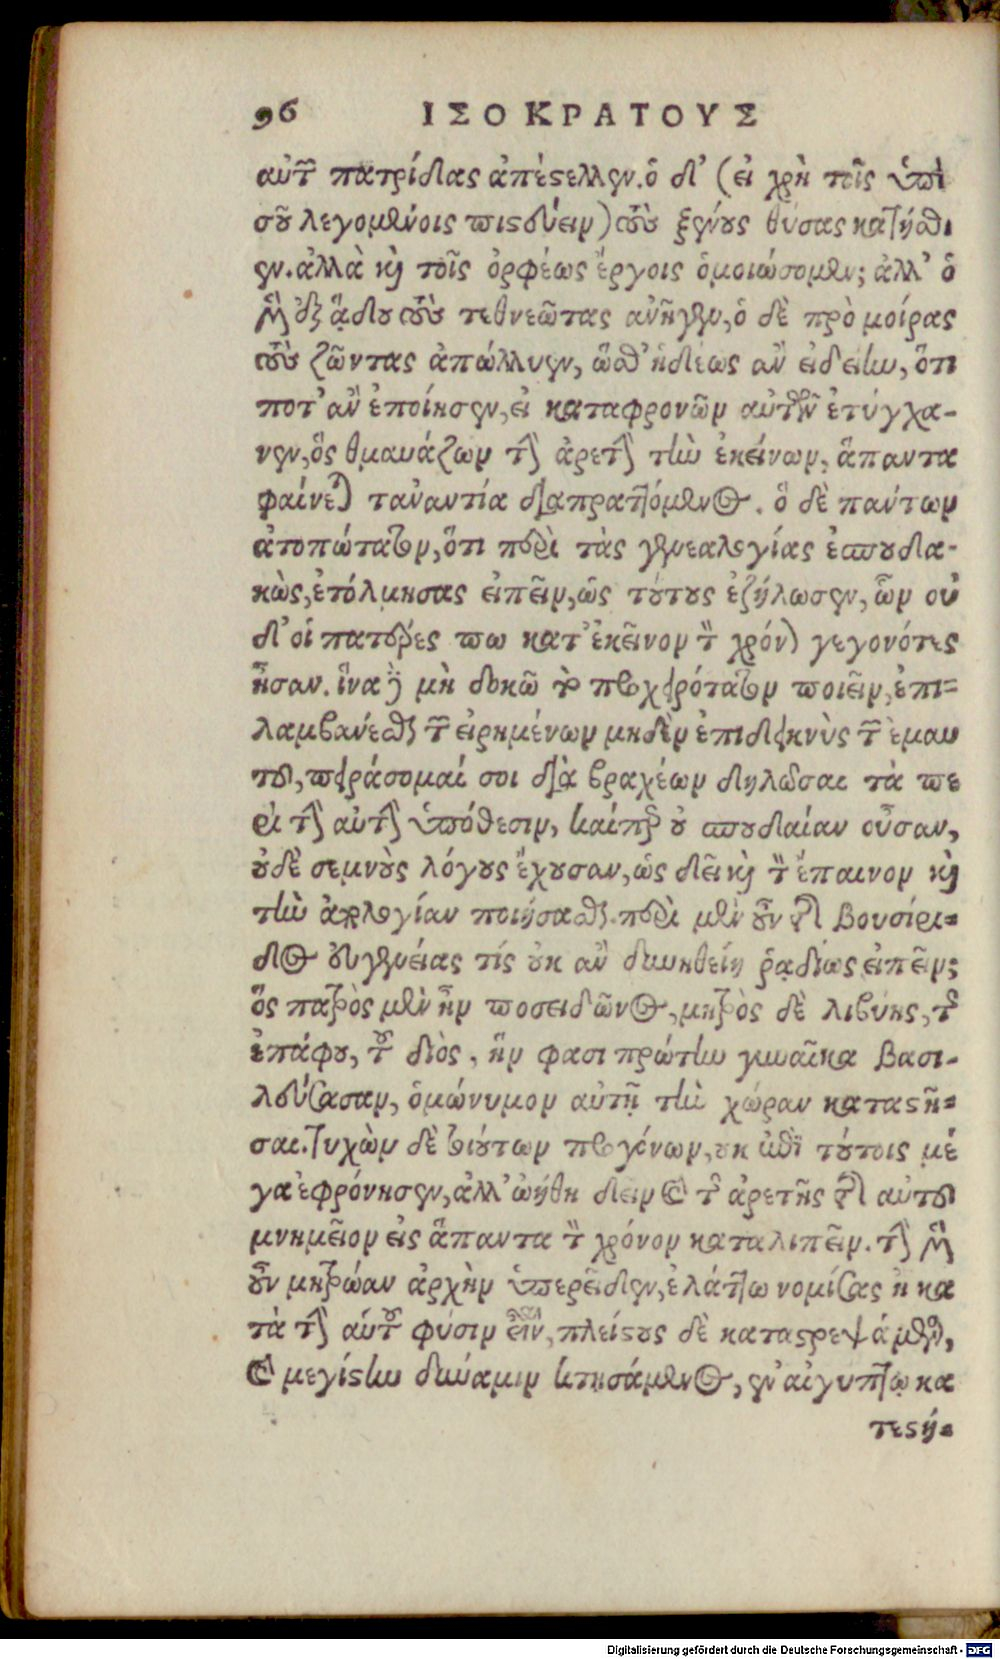 96 ΙΣΟΚΡΑΤΟΥΣ
αὐτῶν πατρίδας ἀπέστελλεν. ὁ δ' (εἰ χρὴ τοῖς ὑπὸ
σοῦ λεγομένοις πιστεύειν) τοὺς ξένους θύσας κατήσθι
εν. ἀλλὰ καὶ τοῖς ὀρφέως ἔργοις ὁμοιώσομεν; ἀλλ' ὁ
μὲν ἐξ ᾅδου τοὺς τεθνεῶτας ἀνῆγεν, ὁ δὲ πρὸ μοίρας
τοὺς ζῶντας ἀπώλλυεν, ὥσθ' ἡδέως ἂν εἰδείην, ὅτι
ποτ' ἂν ἐποίησεν, εἰ καταφρονῶν αὐτῶν ἐτύγχα-
νεν, ὃς θμαυάζων τὴν ἀρετὴν τὴν ἐκείνων, ἅπαντα
φαίνεται ταναντία διαπραττόμενος. ὃ δὲ πάντων
ἀτοπώτατον, ὅτι περὶ τὰς γενεαλογίας ἐσπουδα-
κὼς, ἐτόλμησας εἰπεῖν, ὡς τούτους ἐζήλωσεν, ὧν οὐ
δ' οἱ πατέρες πω κατ' ἐκεῖνον τὸν χρόνον γεγονότες
ἦσαν. ἵνα δὲ μὴ δοκῶ τὸ προχειρότατον ποιεῖν, ἐπι-
λαμβάνεσθαι τῶν εἰρημένων μηδὲν ἐπιδεικνὺς τῶν ἐμαυ
τοῦ, πειράσομαί σοι διὰ βραχέων δηλῶσαι τὰ πε
ρὶ τὴν αὐτὴν ὑπόθεσιν, καίπερ οὐ σπουδαίαν οὖσαν,
οὐδὲ σεμνοὺς λόγους ἔχουσαν, ὡς δεῖ καὶ τὸν ἔπαινον καὶ
τὴν ἀπολογίαν ποιήσασθαι. περὶ μὲν οὖν τῆς Βουσίρι-
δος εὐγενείας τίς οὐκ ἂν δυνηθείη ῥᾳδίως εἰπεῖν;
ὃς πατρὸς μὲν ἦν ποσειδῶνος, μητρὸς δὲ λιβύης, τῆς
ἐπάφου, τοῦ διὸς, ἥν φασι πρώτην γυναῖκα βασι-
λεύσασαν, ὁμώνυμον αὐτῇ τὴν χώραν καταστῆ-
σαι. τυχὼν δὲ τοιούτων προγόνων, οὐκ ἐπὶ τούτοις μέ
γα ἐφρόνησεν, ἀλλ' ᾠήθη δεῖν καὶ τῆς ἀρετῆς τῆς αὐτοῦ
μνημεῖον εἰς ἅπαντα τὸν χρόνον καταλιπεῖν. τὴν μὲν
οὖν μητρώαν ἀρχὴν ὑπερεῖδεν, ἐλάττω νομίσας ἢ κα
τὰ τὴν αὑτοῦ φύσιν εἶναι, πλείστους δὲ καταστρεψάμενος,
καὶ μεγίστην δύναμιν κτησάμενος, ἐν αἰγύπτῳ κα
τεστή-
Digitalisierung gefördert durch die Deutsche Forschungsgemeinschaft - DFG